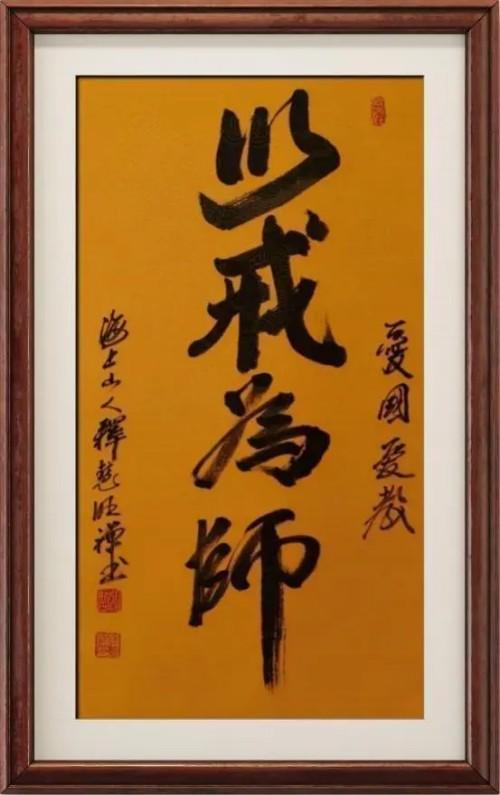 愛國愛教
以戒為師
海上山人釋慧旺禅书